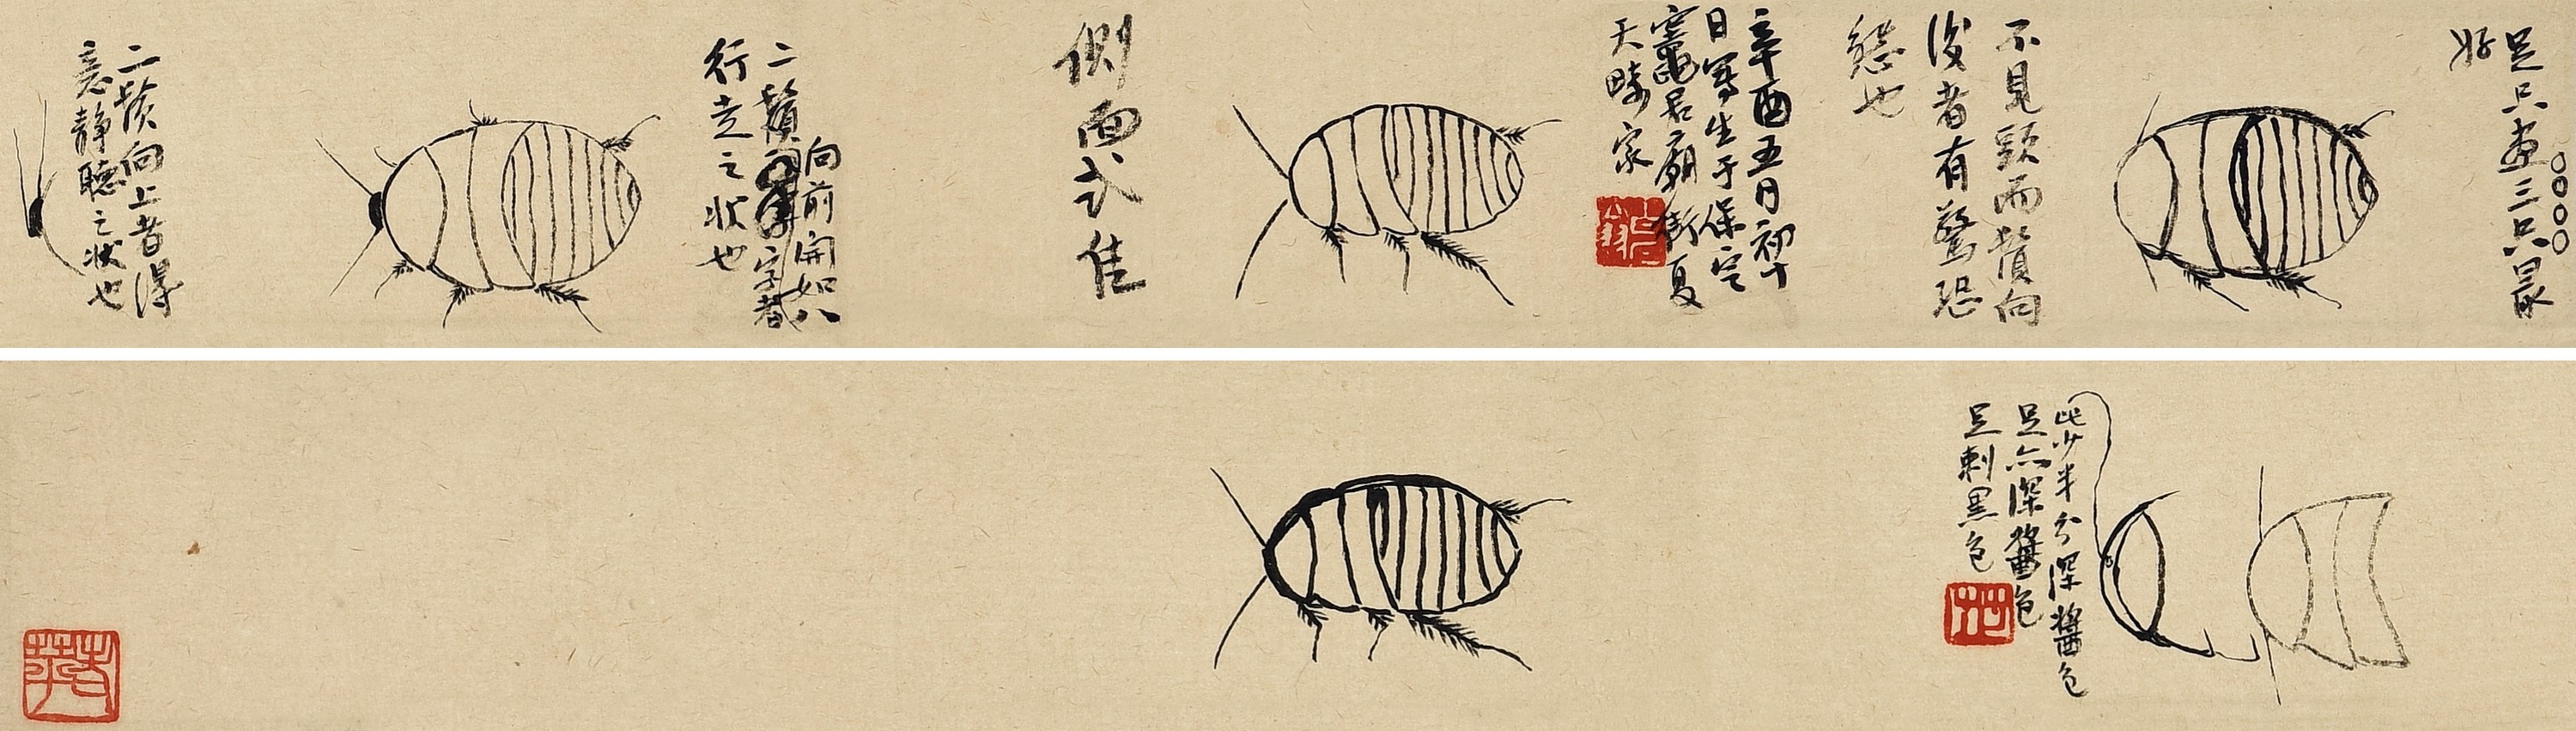 足只畫三只最
好
不見頭而鬚向
後者有驚恐
態也
辛酉五月初十
日寫生于保定
竈君廟街夏
天畸家
側面式佳
二鬚向前開如八
字者
行走之狀也
二鬚向上者得
意靜聽之狀也
此少半分深醬色
足亦深醬色
足刺黑色